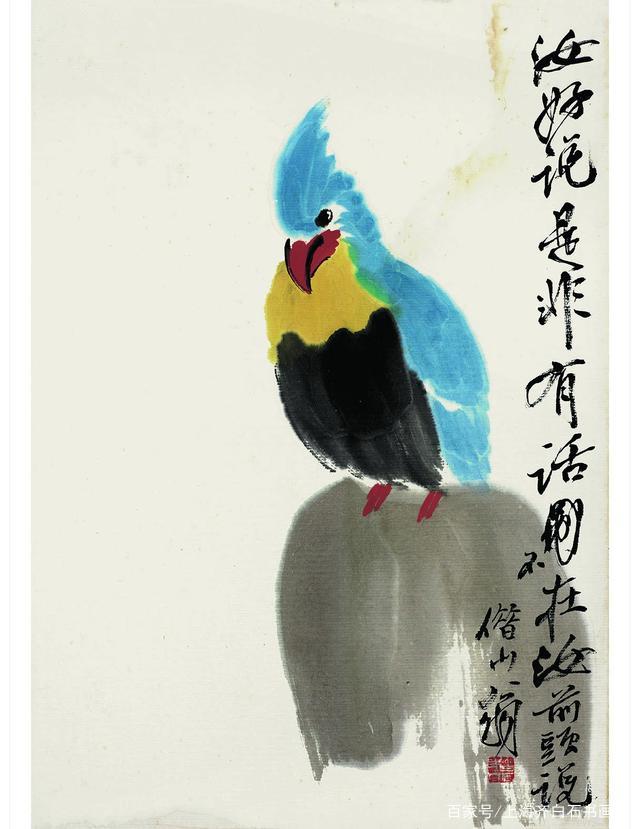 汝好说是非有话不在汝前頭说
借山翁
百家号/上海齐白石书画